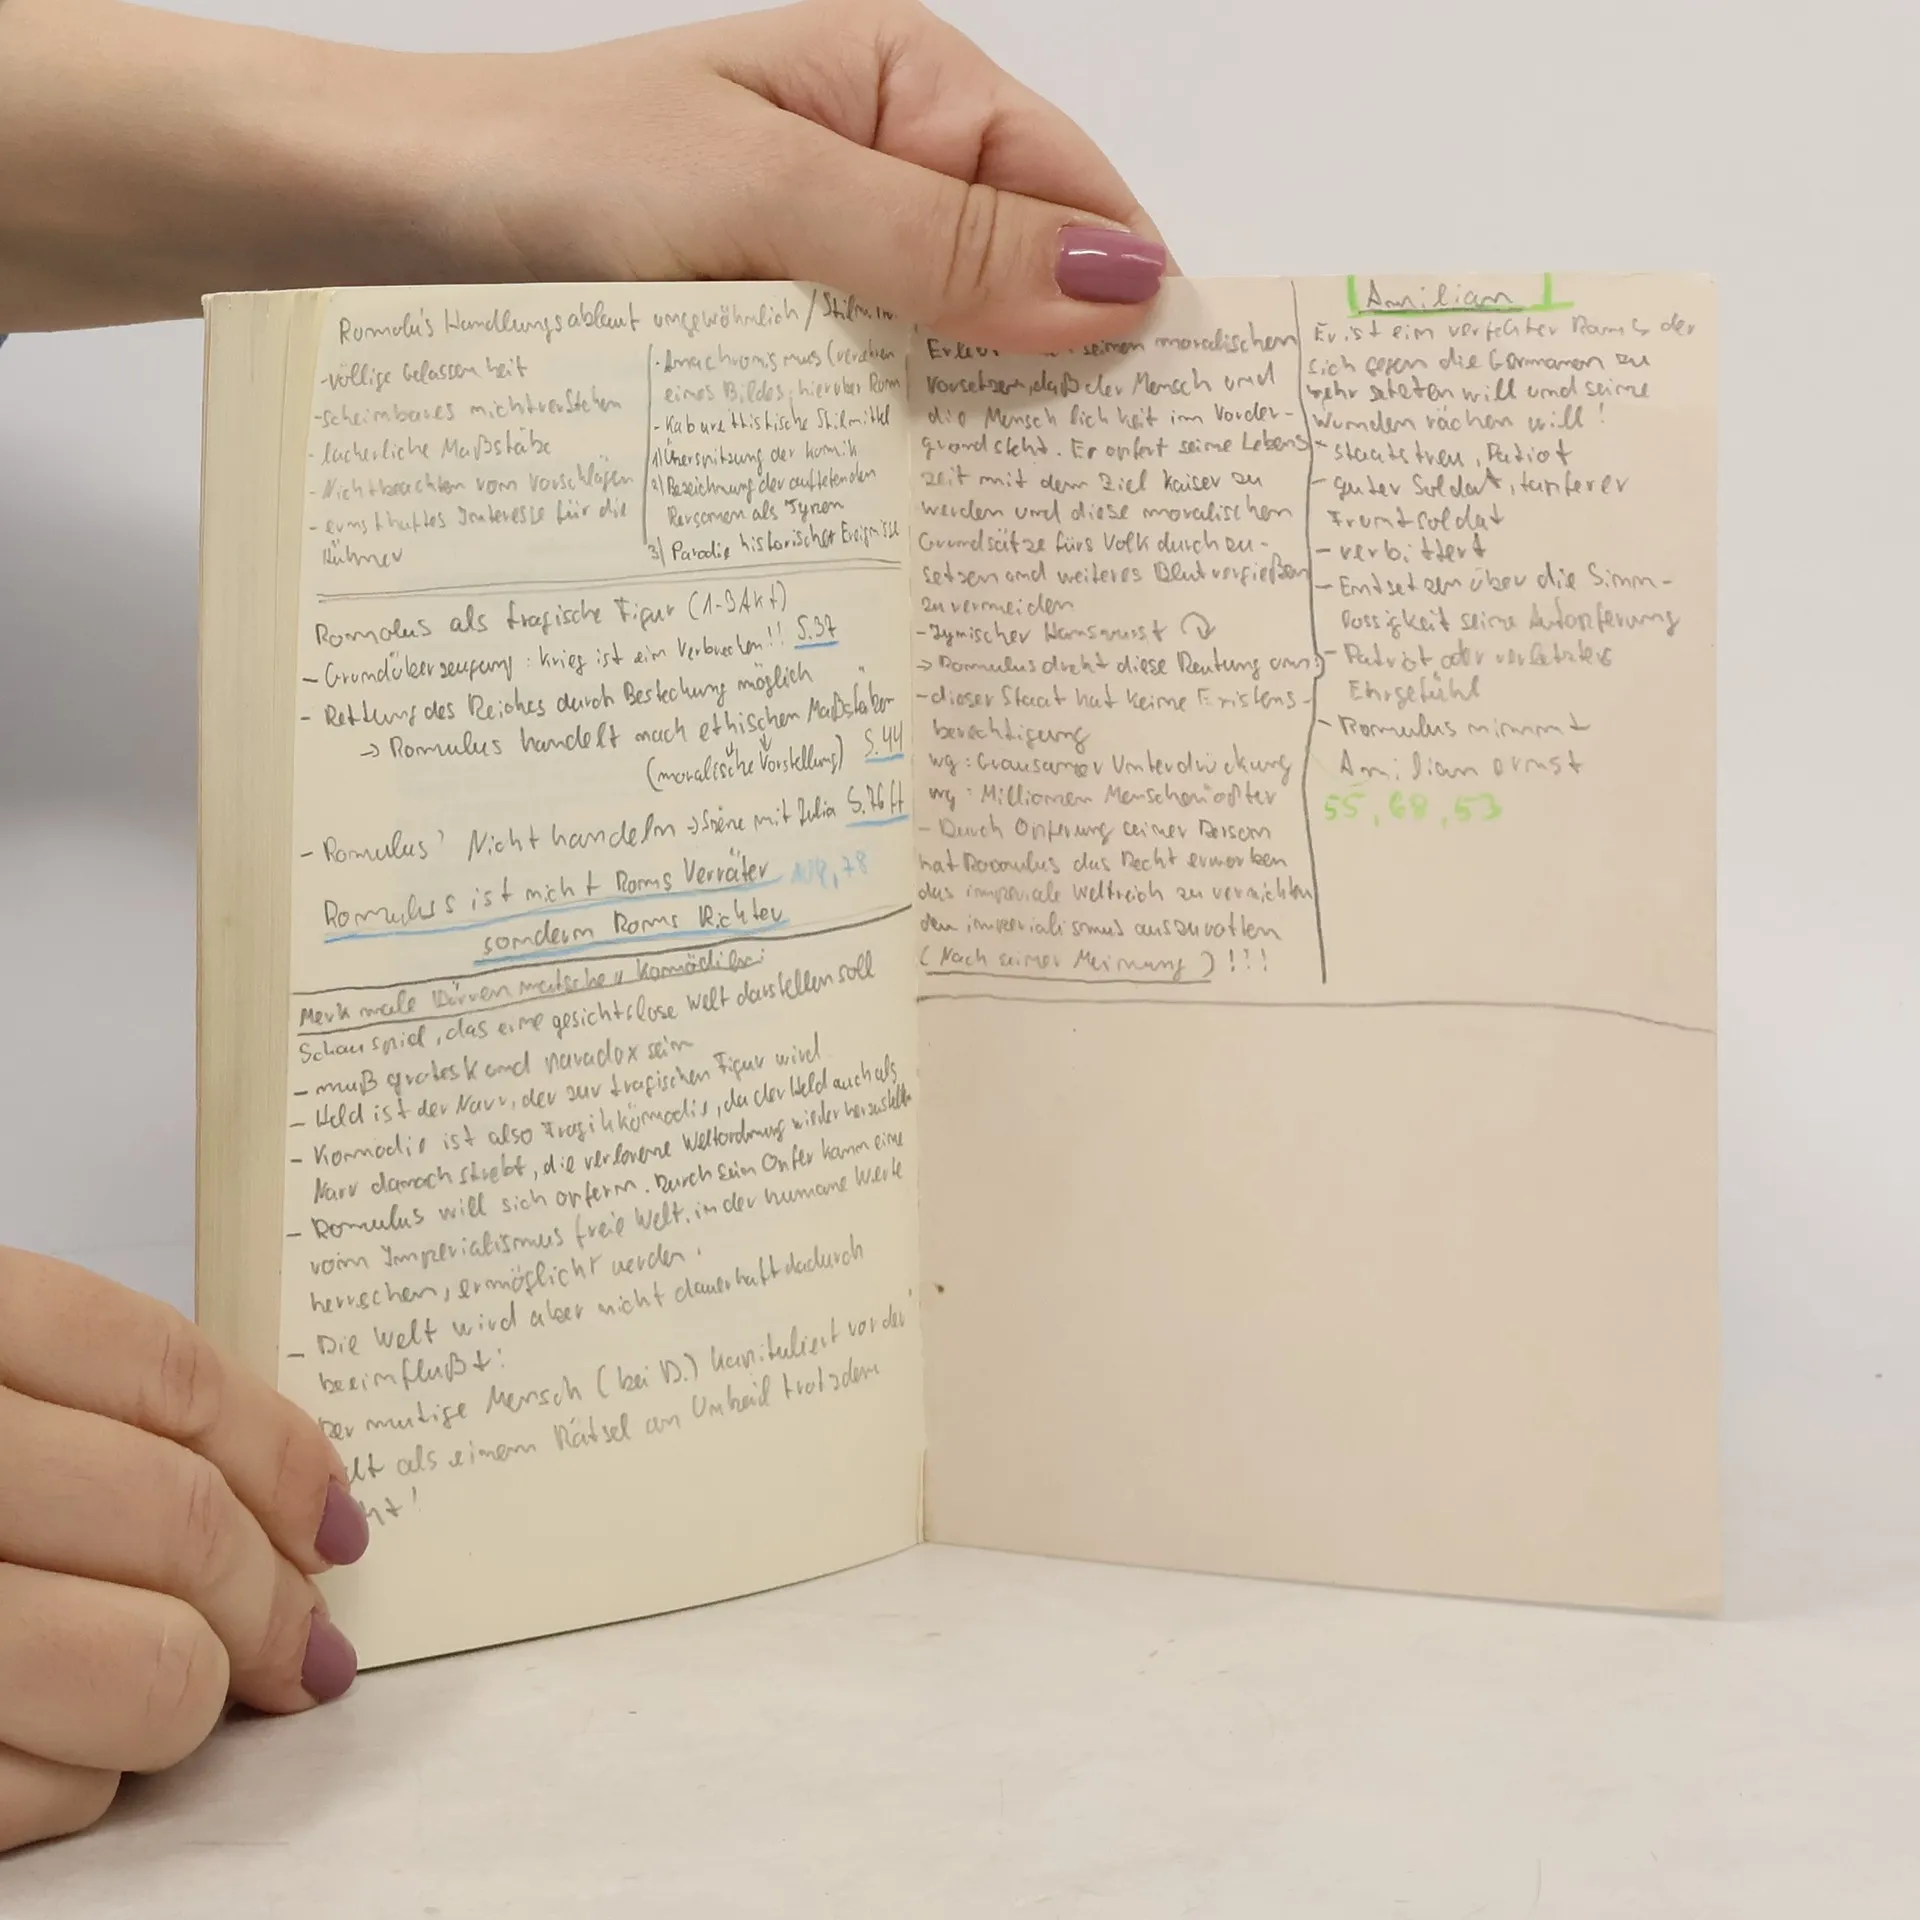 Romolu's Handlungsablauf ungewöhnlich / Stilm.
-völlige Gelassenheit
-scheinbares nichtverstehen
- lächerliche Maßstäbe
- Nichtbeachten von Vorschlägen
- ernsthaftes Interesse für die
Hühner
- Anachronismus (verdrehen
eines Bildes, hierüber Rom
- Kabarettistische Stilmittel
1) Überspitzung der Komik
2) Bezeichnung der auftetenden
Personen als Typen
3) Parodie historischer Ereignisse
Romolus als tragische Figur (1-3 Akt)
- Grundüberzeugung: Krieg ist ein Verbrechen!! S.37
- Rettung des Reiches durch Bestechung möglich
-> Romulus handelt nach ethischen Maßstäben
(moralische Vorstellung) S.44
- Romulus' Nichthandeln -> Szene mit Julia S.76ff
Romulus ist nicht Roms Verräter 78
sondern Roms Richter
Merkmale Dürrenmatscher Komödien:
Schauspiel, das eine gesichtslose Welt darstellen soll
- muß grotesk und paradox sein
- Held ist der Narr, der zur tragischen Figur wird
- Komödie ist also Tragikkömodie, da der Held auch als
Narr danach strebt, die verlorene Weltordnung wieder herzustellen
- Romulus will sich opfern. Durch sein Opfer kann eine
vom Imperialismus freie Welt, in der humane Werte
herrschen, ermöglicht werden.
- Die Welt wird aber nicht dauerhaft dadurch
beeinflußt!
Der mutige Mensch (bei D.) kapituliert vor der
als einem Rätsel an Unheil trotzdem
seinen moralischen
Vorsetzen, daß der Mensch und
die Menschlichkeit im Vorder-
grund steht. Er opfert seine Lebens
zeit mit dem Ziel Kaiser zu
werden und diese moralischen
Grundsätze fürs Volk durchzu-
setzen und weiteres Blutvergießen
zu vermeiden
- Zynischer Hanswurst
-> Romulus dreht diese Deutung um!
- dieser Staat hat keine Existens-
berechtigung
wg: Grausamer Unterdrückung
wg: Millionen Menschenopfer
- Durch Opferung seiner Person
hat Romulus das Recht erworben
das imperiale Weltreich zu vernichten
den imperialismus auszurotten
(Nach seiner Meinung) !!!
Ämilian
Er ist ein verfechter Roms der
sich gegen die Germanen zu
wehr setzten will und seine
Wunden rächen will!
- staatstreu, Patriot
- guter Soldat, tapferer
Frontsoldat
- verbittert
- Entsetzen über die Sinn-
lossigkeit seine Aufopferung
- Patriot oder verletztes
Ehrgefühl
- Romulus nimmt
Ämilian ernst
55, 68, 53